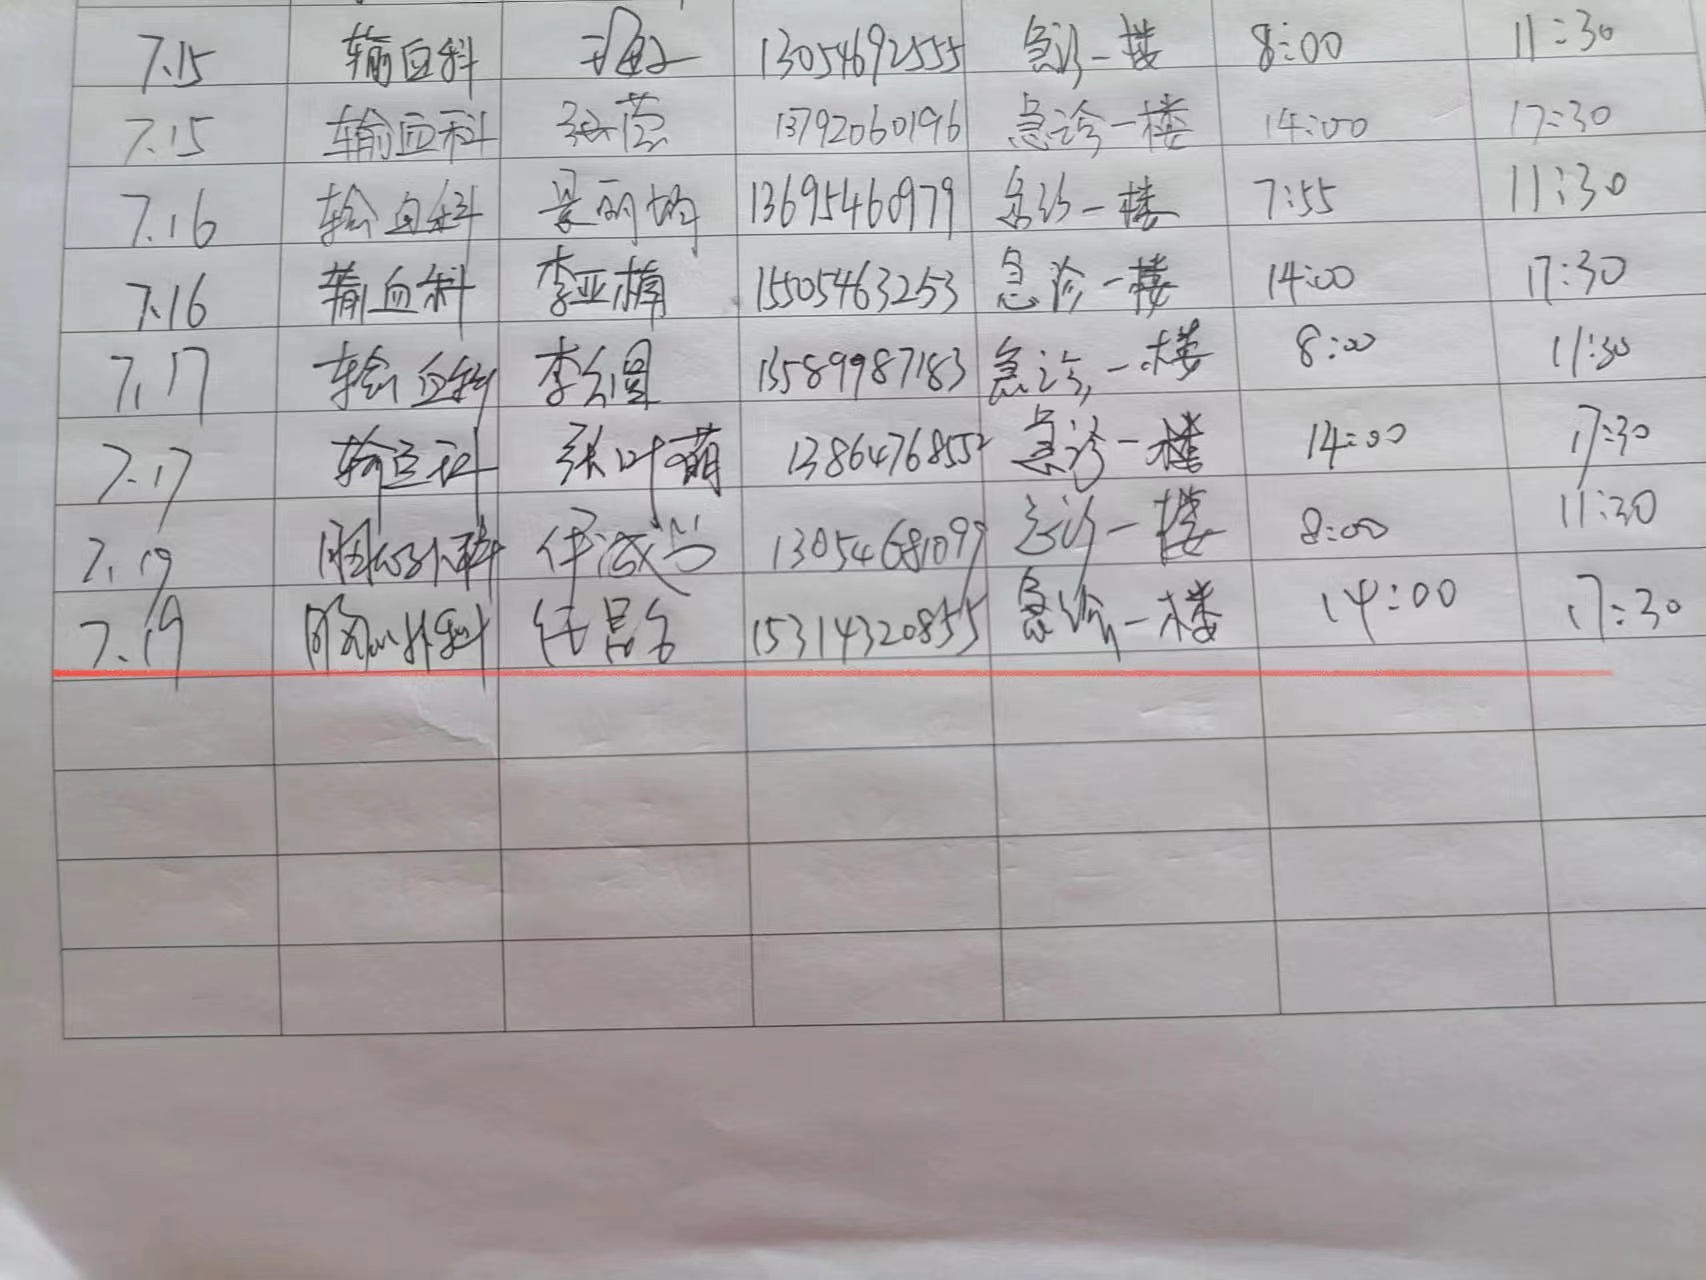 7.15 输血科 13054692555 急诊一楼 8:00 11:30
7.15 输血科 张莹 13792060196 急诊一楼 14:00 17:30
7.16 输血科 景丽娟 13695460979 急诊一楼 7:55 11:30
7.16 输血科 李亚楠 15505463253 急诊一楼 14:00 17:30
7.17 输血科 13589987183 急诊一楼 8:00 11:30
7.17 输血科 张叶萌 13864768552 急诊一楼 14:00 17:30
7.19 胸心外科 13054681099 急诊一楼 8:00 11:30
7.19 胸心外科 任昌名 15314320855 急诊一楼 14:00 17:30